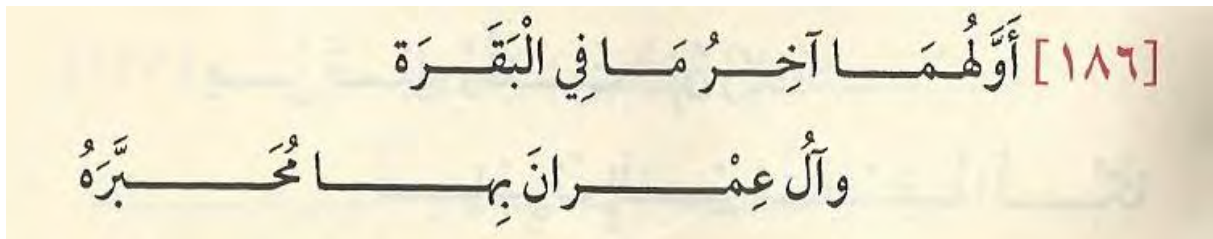 [١٨٦] أَوَّلُهُمَا آخِرُ مَا فِي الْبَقَرَة
وآلُ عِمْرانَ بِها مُحَبَّرَهُ